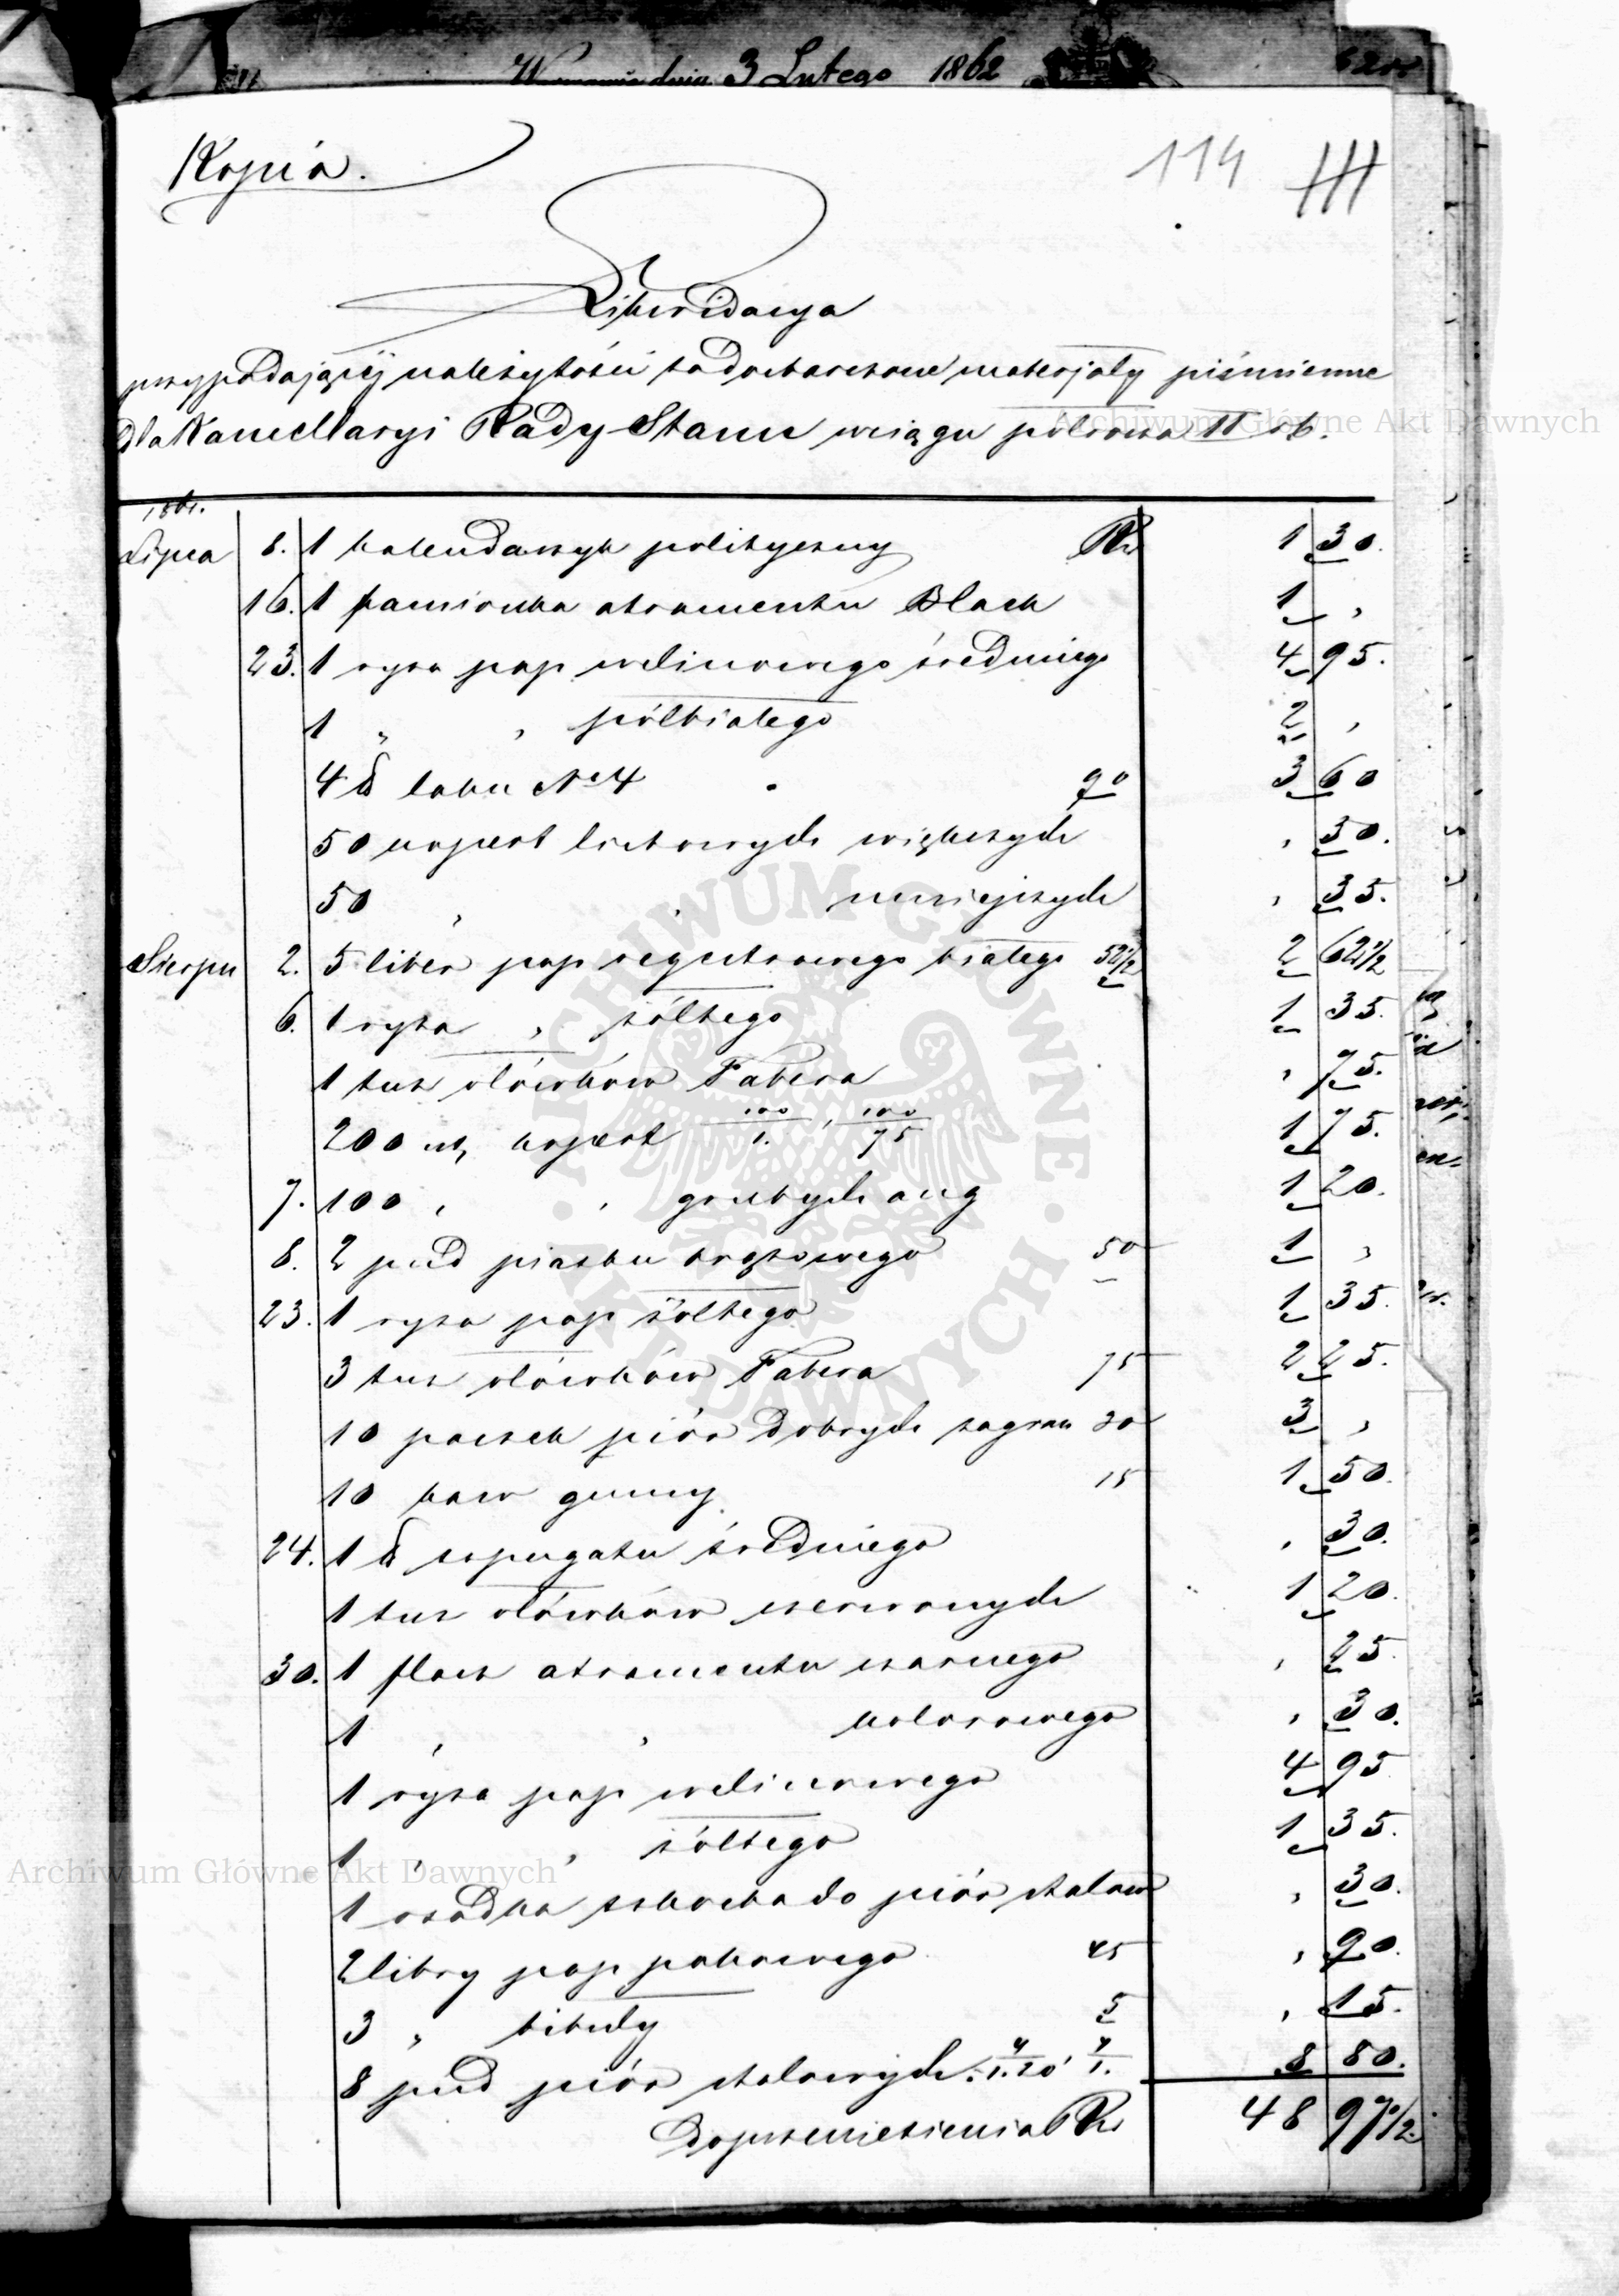 dnia 3 Lutego 1862
Kopia.
114
Likwidacya
przypadającéj należytości za dostarczone materjały piśmienne
dla Kancellaryi Rady Stanu w ciągu półrocza II rb.
1861.
Lipca 8. 1 kalendarzyk polityczny Rs 1 30.
16. 1 kamionka atramentu Black 1 „
23. 1 ryza pap welinowego średniego 4 95.
1 „ „ półbiałego 2 „
4 ℔ laku No 4 90 3 60
50 kopert listowych większych „ 30.
50 „ „ mniejszych „ 35.
Sierpn 2. 5 liber pap regestrowego białego 52½ 2 62½
6. 1 ryza „ żółtego 1 35.
1 tuz ołówków Fabera „ 75.
200 szt, kopert 100/1. , 100/75 1 75.
7. 100 „ „ grubych ang 1 20.
8. 2 pud piasku brązowego 50 1 „
23. 1 ryza pap żółtego 1 35.
3 tuz ołówków Fabera 75 2 25.
10 paczek piór dobrych zagran 30 3 „
10 kaw gummy 15 1 50.
24. 1 ℔ szpagatu średniego „ 30.
1 tuz ołówków czerwonych 1 20.
30. 1 flasz atramentu czarnego „ 25.
1 „ „ kolorowego „ 30.
1 ryza pap welinowego 4 95
1 „ „ żółtego 1 35.
1 osadka do piór stalow „ 30.
2 libry pap pakowego 45 „ 90.
3 „ bibuły 5 „ 15.
8 pud piór stalowych 4/1.20 4/1. 8 80.
Do przeniesienia Rs 48 97½
Archiwum Główne Akt Dawnych
Archiwum Główne Akt Dawnych
ARCHIWUM GŁÓWNE · AKT DAWNYCH ·